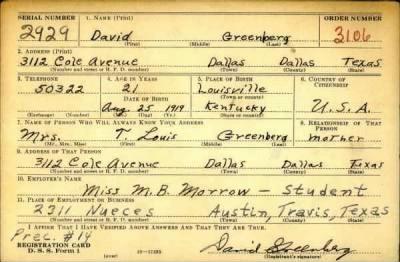 SERIAL NUMBER 1. NAME (Print) ORDER NUMBER
2929 David Greenberg 3106
(First) (Middle) (Last)
2. ADDRESS (Print)
3112 Cole Avenue Dallas Dallas Texas
(Number and street or R. F. D. number) (Town) (County) (State)
3. TELEPHONE 4. AGE IN YEARS 5. PLACE OF BIRTH 6. COUNTRY OF CITIZENSHIP
50322 21 Louisville
DATE OF BIRTH
Aug. 25 1919 Kentucky U.S.A.
(Exchange) (Number) (Mo.) (Day) (Yr.) (State or country)
7. NAME OF PERSON WHO WILL ALWAYS KNOW YOUR ADDRESS 8. RELATIONSHIP OF THAT PERSON
Mrs. T Louis Greenberg mother
(Mr., Mrs., Miss) (First) (Middle) (Last)
9. ADDRESS OF THAT PERSON
3112 Cole Avenue Dallas Dallas Texas
(Number and street or R. F. D. number) (Town) (County) (State)
10. EMPLOYER'S NAME
Miss M.B. Morrow - Student
11. PLACE OF EMPLOYMENT OR BUSINESS
2311 Nueces Austin, Travis, Texas
(Number and street or R. F. D. number) (Town) (County) (State)
I AFFIRM THAT I HAVE VERIFIED ABOVE ANSWERS AND THAT THEY ARE TRUE.
Prec. #14
REGISTRATION CARD
D. S. S. Form 1 (over) David Greenberg
(Registrant's signature)